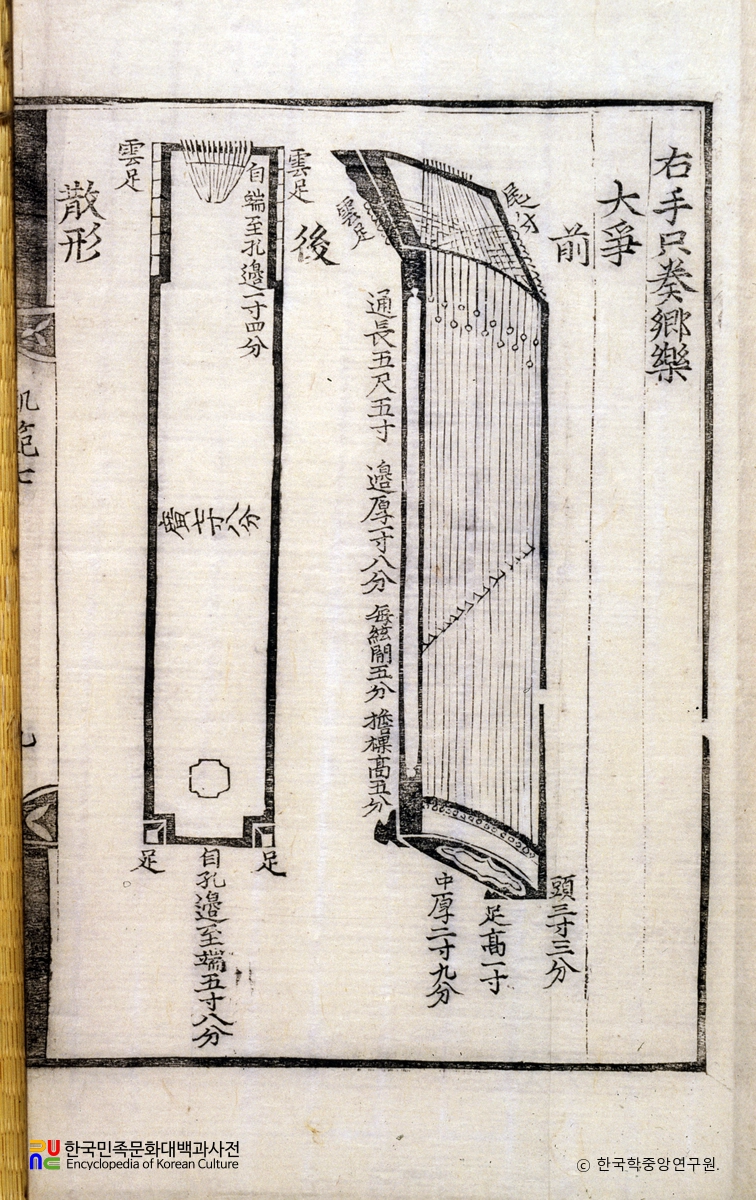 右手只奏鄕樂
大爭
前
尾
雲足
通長五尺五寸 邊厚一寸八分 每絃間五分 擔棵高五分
頭三寸三分
足高一寸
中厚二寸九分
後
雲足
雲足
自端至孔邊一寸四分
七寸八分
足
足
自孔邊至端五寸八分
散形
範七
한국민족문화대백과사전
Encyclopedia of Korean Culture
ⓒ 한국학중앙연구원.